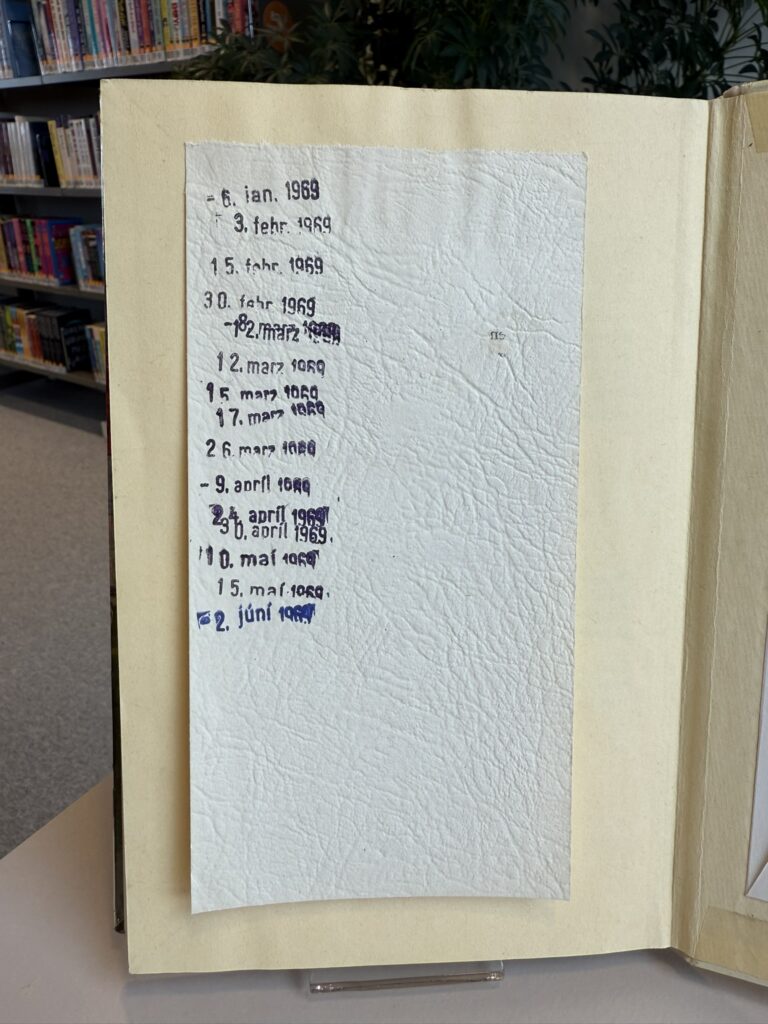 - 6. jan. 1969
3. febr. 1969
15. febr. 1969
30. febr 1969
12. marz
12. marz 1969
15. marz 1969
17. marz 1969
26. marz 1969
- 9. apríl 1969
24. apríl 1969
30. apríl 1969.
10. maí 1969
15. maí 1969.
- 2. júní 1969